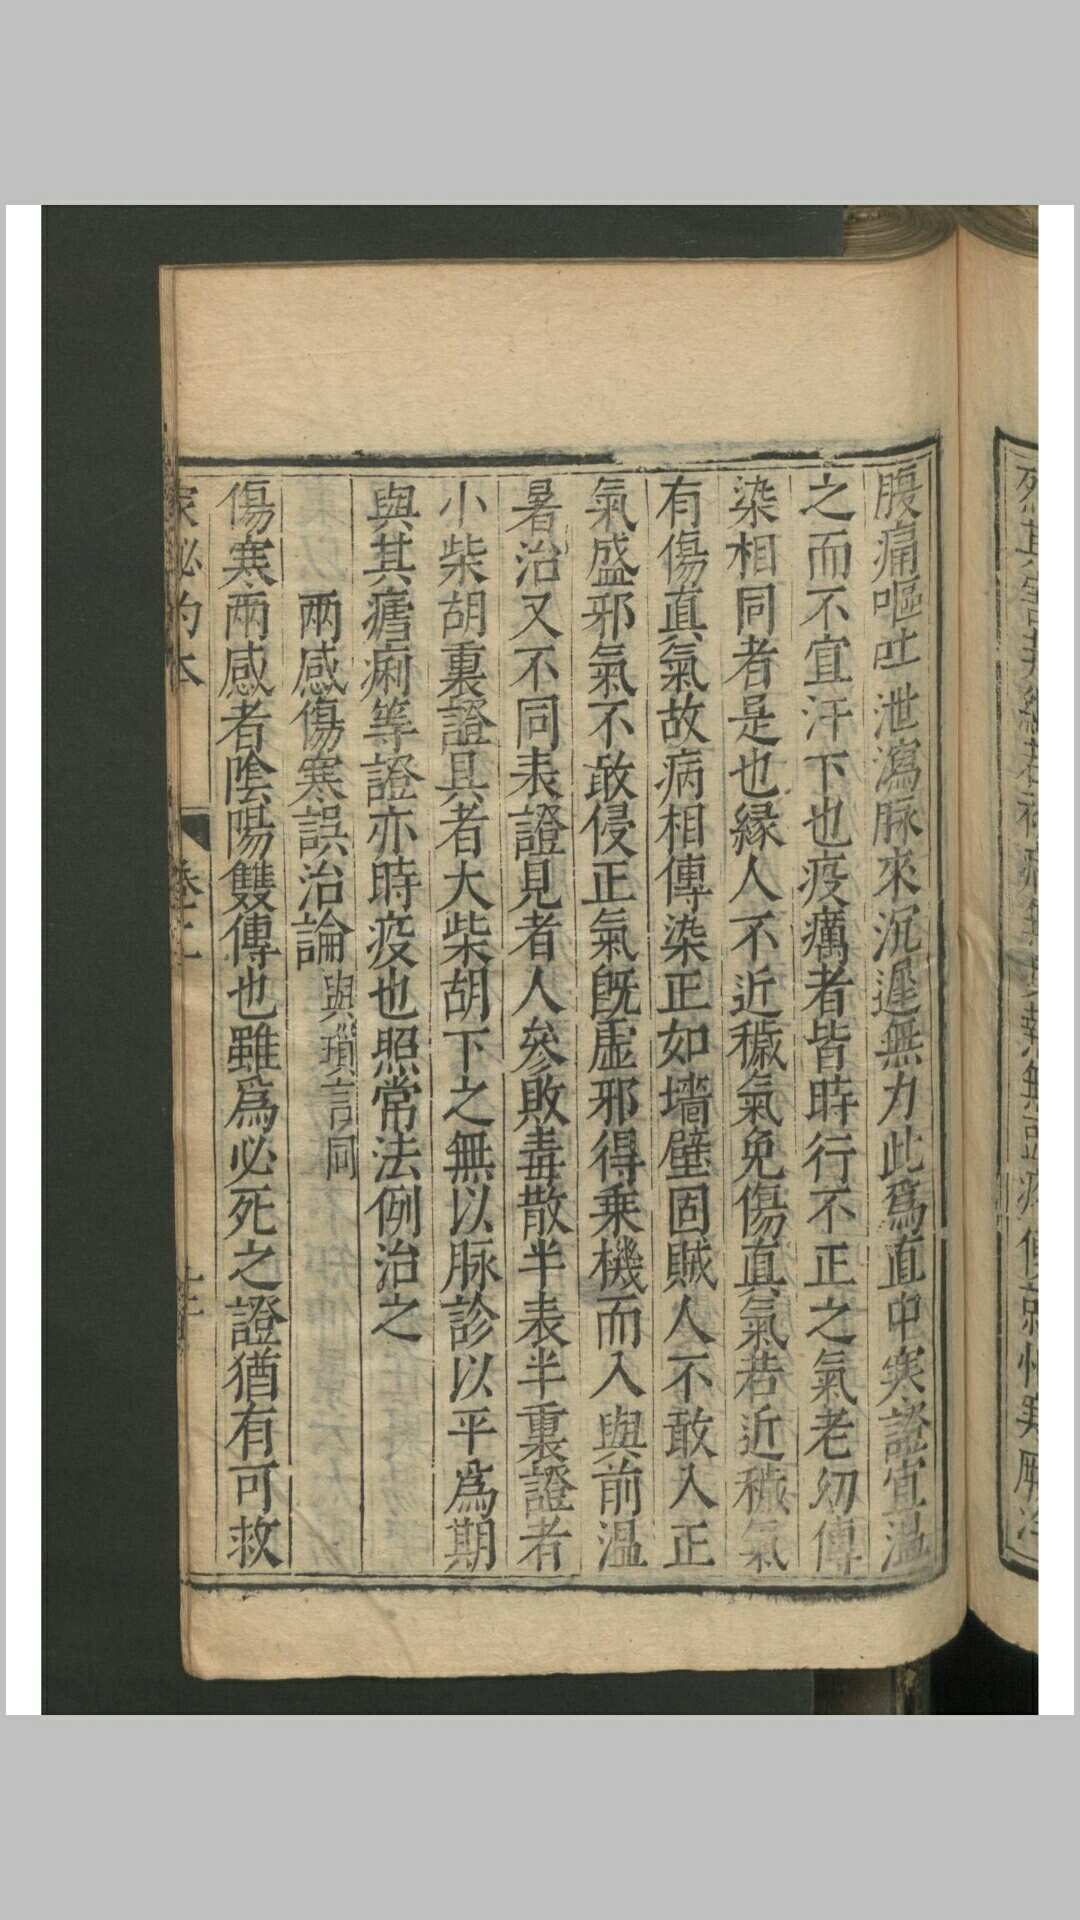 腹痛嘔吐泄瀉脉來沉遲無力此爲直中寒證宜溫
之而不宜汗下也疫癘者皆時行不正之氣老幼傳
染相同者是也縁人不近穢氣免傷真氣若近穢氣
有傷真氣故病相傳染正如墻壁固賊人不敢入正
氣盛邪氣不敢侵正氣旣虛邪得乗機而入與前溫
暑治又不同表證見者人參敗毒散半表半裏證者
小柴胡裏證具者大柴胡下之無以脉診以平爲期
與其瘧痢等證亦時疫也照常法例治之
兩感傷寒誤治論 與瑣言同
傷寒兩感者陰陽雙傳也雖爲必死之證猶有可救
家秘的本 卷二